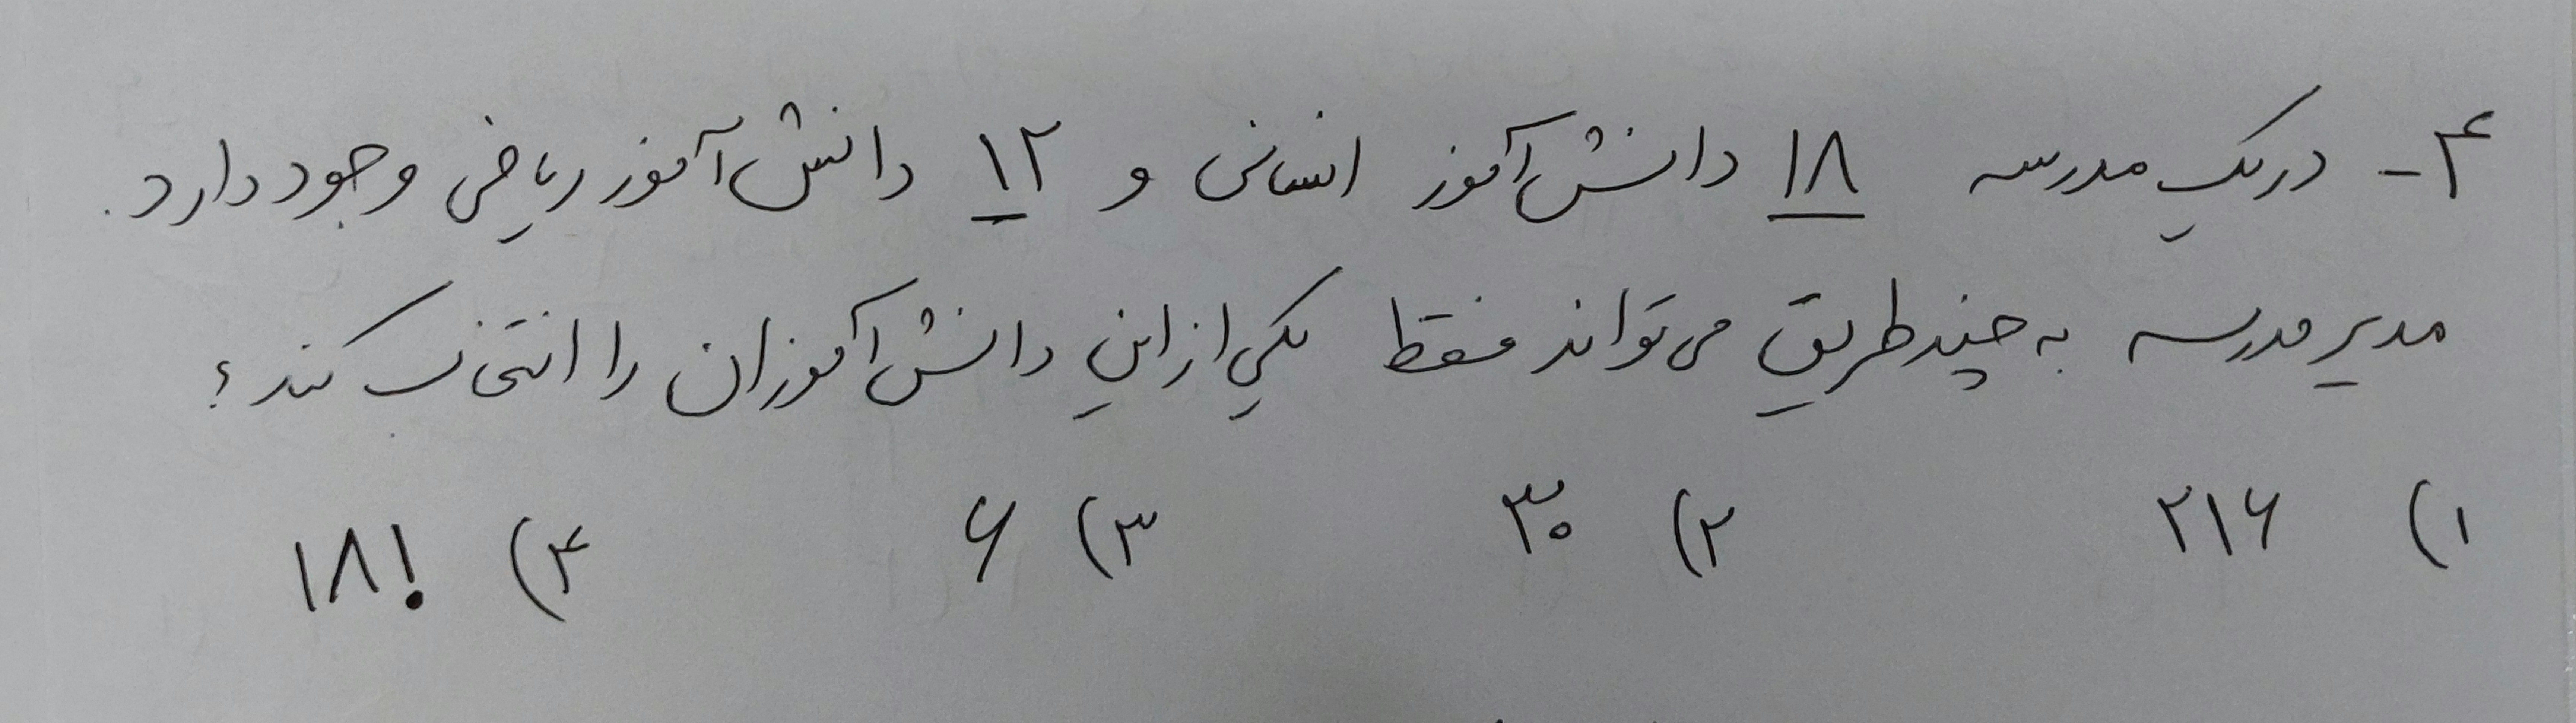 ۴- در یک مدرسه ۱۸ دانش آموز انسانی و ۱۲ دانش آموز ریاضی وجود دارد.
مدیر مدرسه به چند طریق می تواند فقط یکی از این دانش آموزان را انتخاب کند؟
۱) ۲۱۶ ۲) ۳۰ ۳) ۶ ۴) ۱۸!